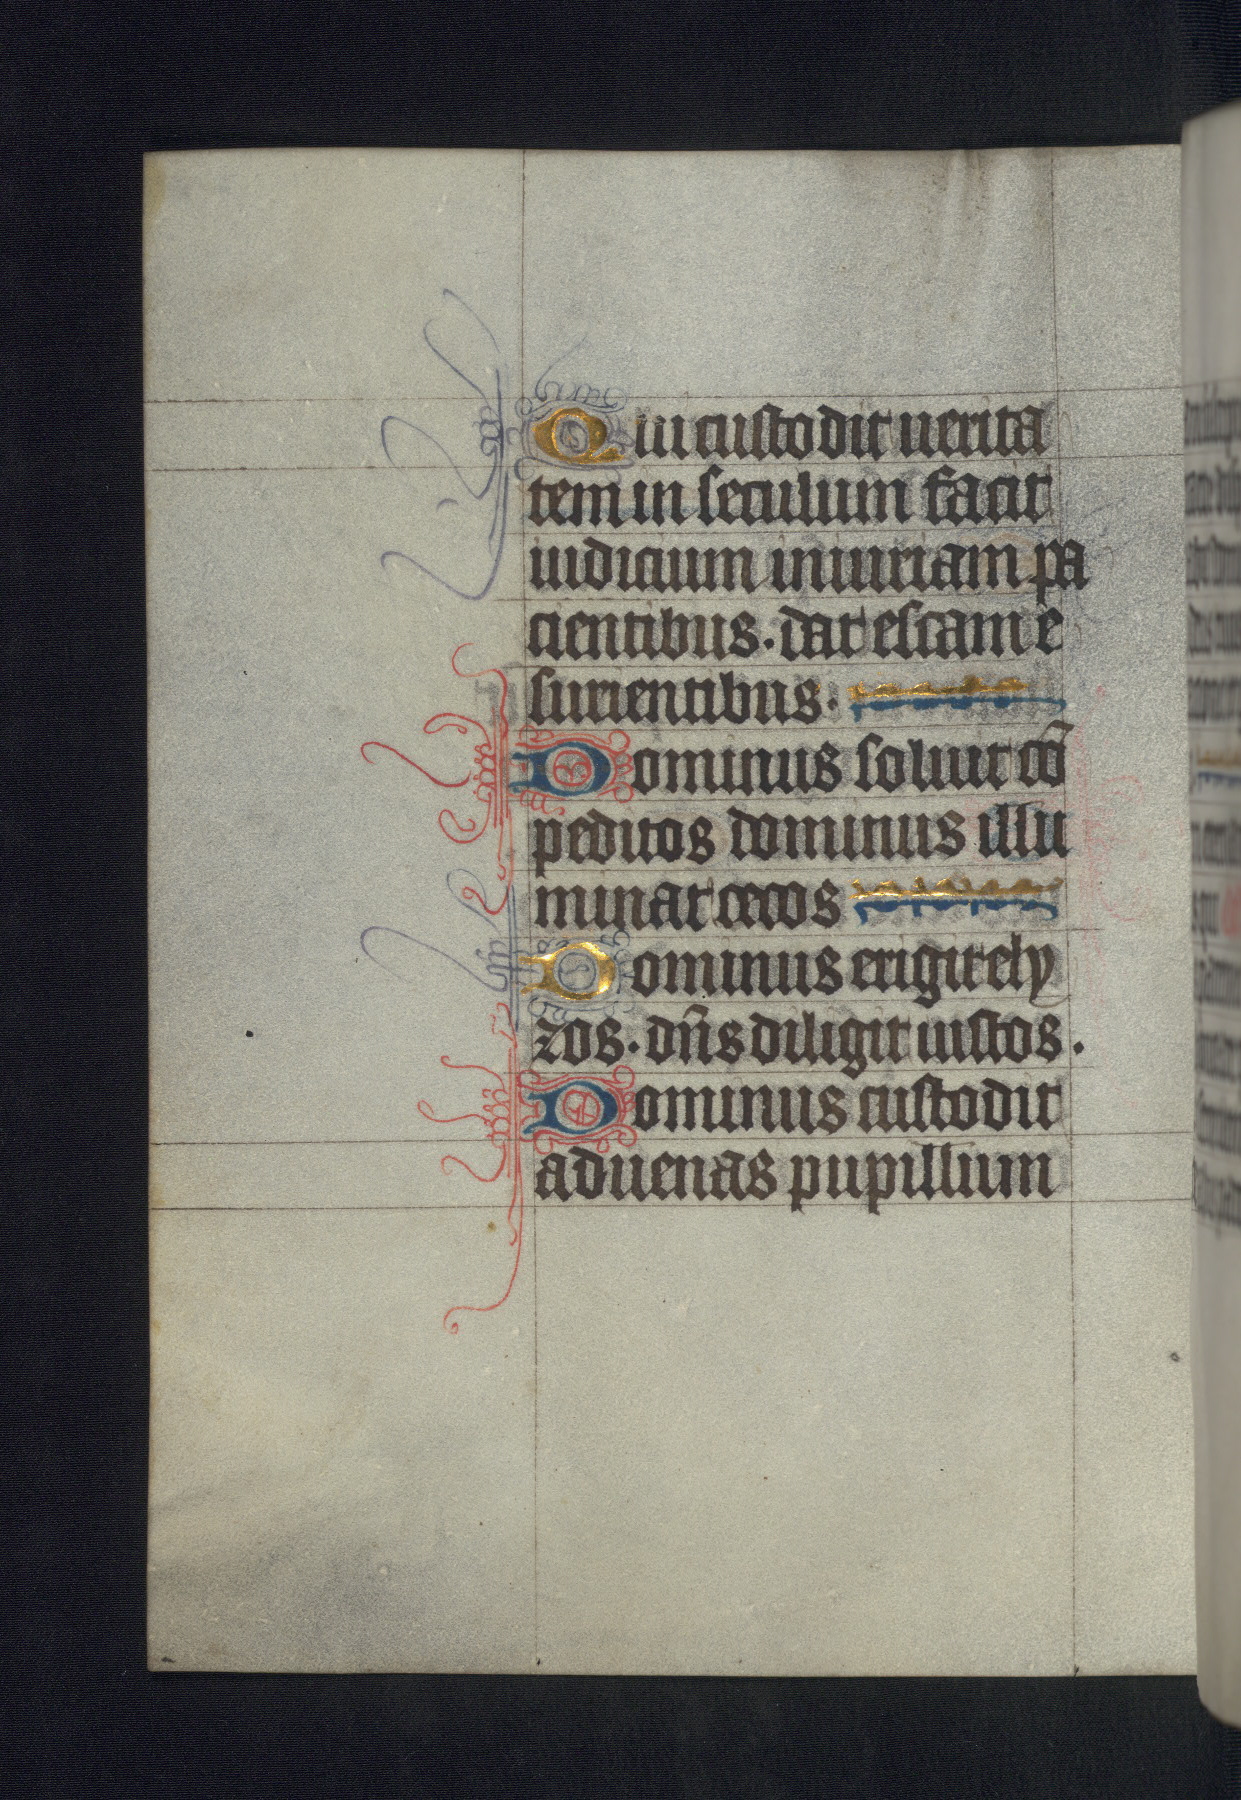 Qui custodit uerita
tem in seculum facit
iudicium iniuriam pa
cientibus. dat escam e
surientibus.
Dominus soluit cō
peditos dominus illu
minat cecos
Dominus erigit ely
zos. dn̄s diligit iustos.
Dominus custodit
aduenas pupillum